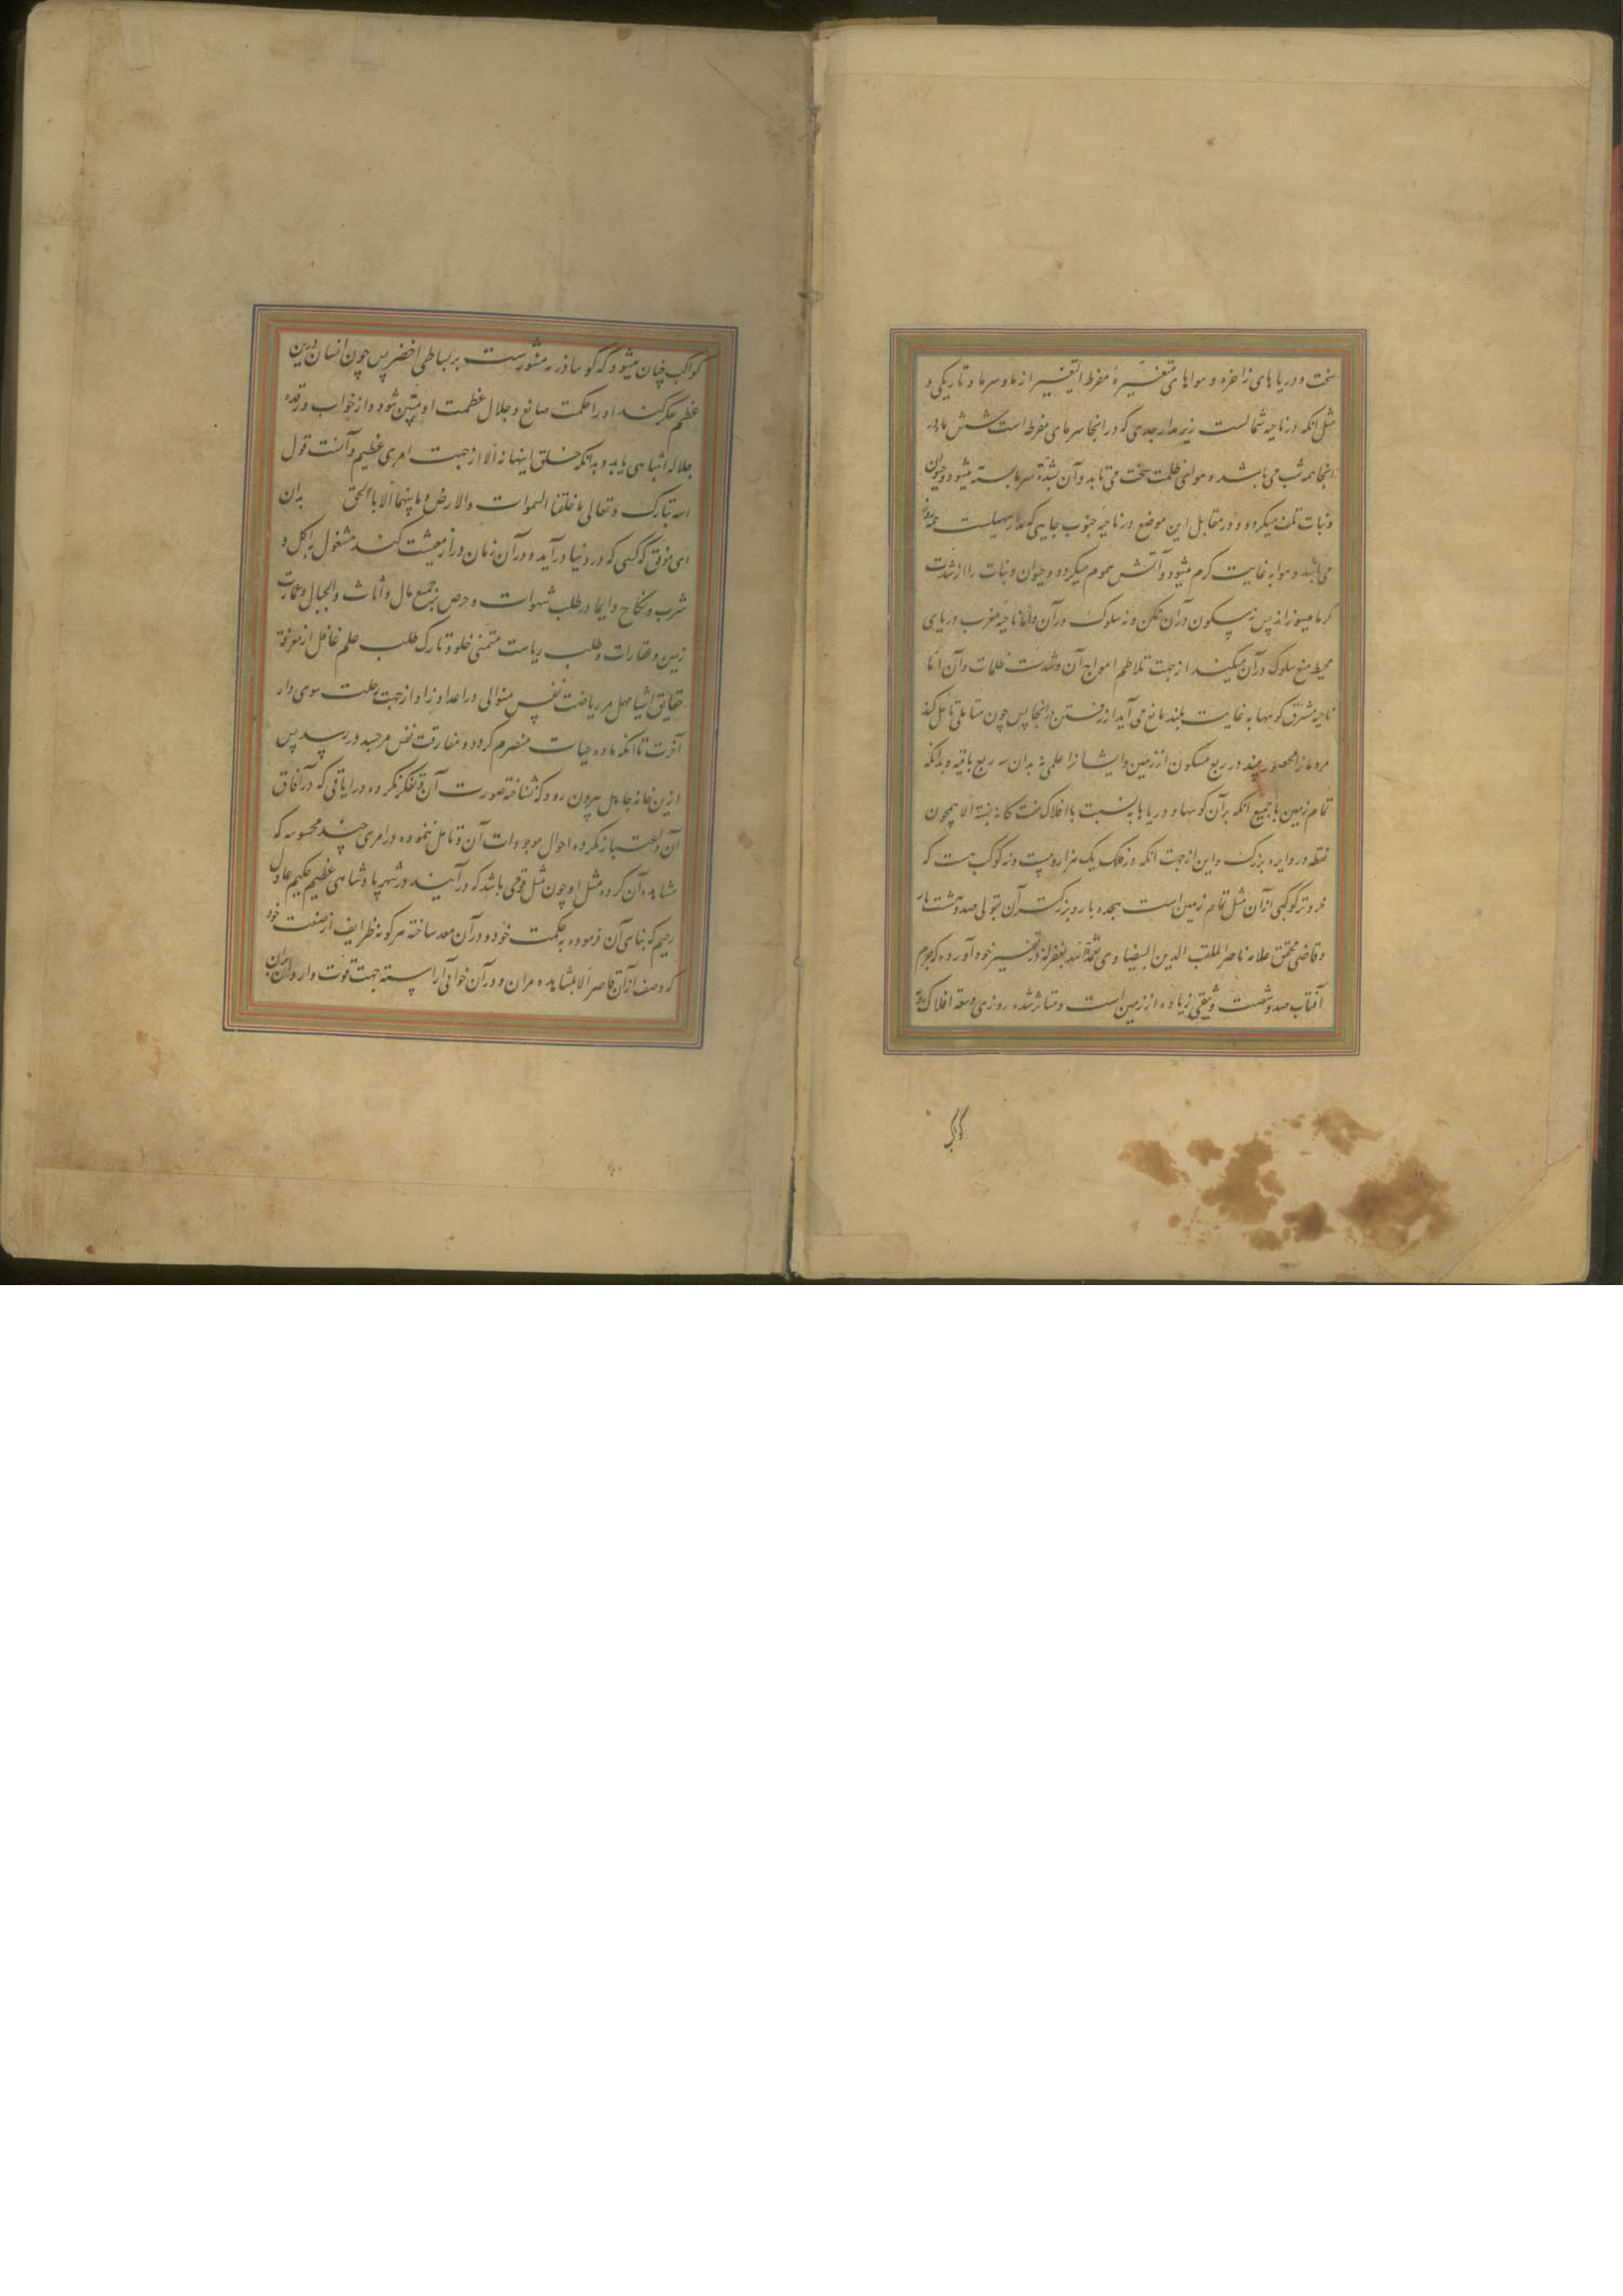 سخت و دریاهای زاخره و هواهای متغیره مفرط التغییر از ما و سرما و تاریکی و
مثل انکه در ناحیه شمالست زیر مدار جدی که در انجا سرمای مفرط است شش ماه در
انجا همه شب می باشد و هوای ظلمت سخت می تابد و آن بشدة سرما بسته میشود و حیوان
و نبات تلف میکردد و در مقابل این موضع در ناحیه جنوب جایی که مدار سهیلست همه روز
می باشد و هوا به غایت کرم میشود و آتش سموم میکردد و حیوان و نبات را از شدت
کرما میسوزاند پس نه سکون در ان ممکن و نه سلوک در آن و اما ناحیه مغرب دریای
محیط منع سلوک در آن میکند از جهت تلاطم امواج آن و شدت ظلمات و آن اما
ناحیه مشرق کوهها به غایت بلند مانع می آید از رفتن در انجا پس چون متاملی تامل کند
مردمانرا محصور بیند در ربع مسکون از زمین و ایشانرا علمی نه بدان سه ربع باقیه و بدانکه
تمام زمین با جمیع انکه بر آن کوهها و دریاها به نسبت با افلاک نیست الا همچون
نقطه در دایره بزرک و این از جهت انکه در فلک یک هزار و بیست و نه کوکب هست که
خردتر کوکبی ازان مثل تمام زمین است هجده بار و بزرکتر آن بقولی صد و هشت بار
و قاضی محقق علامه ناصر الملقب الدین البیضاوی تغمده الله بغفرانه در تفسیر خود آورده که جرم
آفتاب صد و شصت و زیاده از زمین است و متاثر شده روزی وسعة افلاک
کواکب
کواکب چنان میشود که کویا ذره منثورست بر بساطی اخضر پس چون انسان درین
عظم فکر کند او را حکمت صانع و جلال عظمت او مبین شود و از خواب و رقده
جلاله انتباهی یابد و بدانکه خلق اینها نه الا از جهت امری عظیم و آنست قول
الله تبارک و تعالی ما خلقنا السموات والارض وما بینهما الا بالحق بدان
ای موفق که کسی که در دنیا درآید و در آن زمان دراز معیشت کند مشغول به اکل و
شرب و نکاح دایما در طلب شهوات و حرص بر جمع مال و اثاث و عمارت
زمین و عقارات و طلب ریاست متمنی خلود تارک طلب علم غافل از معرفة
حقایق اشیا مهمل مر ریاضت نفس متوالی در اعداد زاد از جهت رحلت سوی دار
آخرت تا انکه ماده حیات منصرم کردد و مفارقت نفس مر جسد در رسد پس
ازین خانه جاهل بیرون رود که نشناخته صورت آن و تفکر نکرده در ایاتی که در آفاق
آن و اعتبار نکرده احوال موجودات آن و تامل ننموده در امری چند محسوسه که
مشاهده آن کرده مثل او چون مثل قومی باشد که درآیند در شهر پادشاهی عظیم حکیم عادل
رحیم که بنای آن فرموده به حکمت خود و در آن معد ساخته هر کونه ظرایف از صنعت خود
که وصف از آن قاصر الا بمشاهده مر ان و در آن خوانی آراسته جهت قوت واردان بران